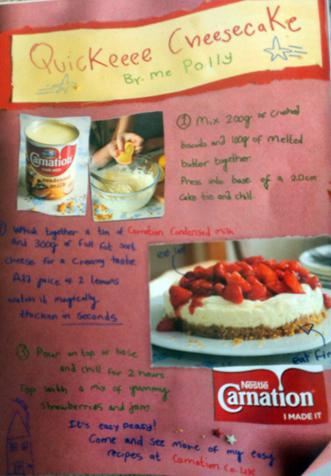 QuicKeeee Cheesecake
By. me Polly
Carnation
① Mix 200g of crushed
biscuits and 100g of melted
butter together
Press into base of a 20cm
cake tin and chill
together a tin of Carnation Condensed milk
and 300g of full fat soft
cheese for a creamy taste.
Add juice of 2 lemons
watch it magically
thicken in seconds
③ Pour on top of base
and chill for 2 hours
Top with a mix of yummy
strawberries and jam.
eat
Nestlé
Carnation
I MADE IT
It's easy peasy!
Come and see more of my easy
recipes at Carnation.co.uk